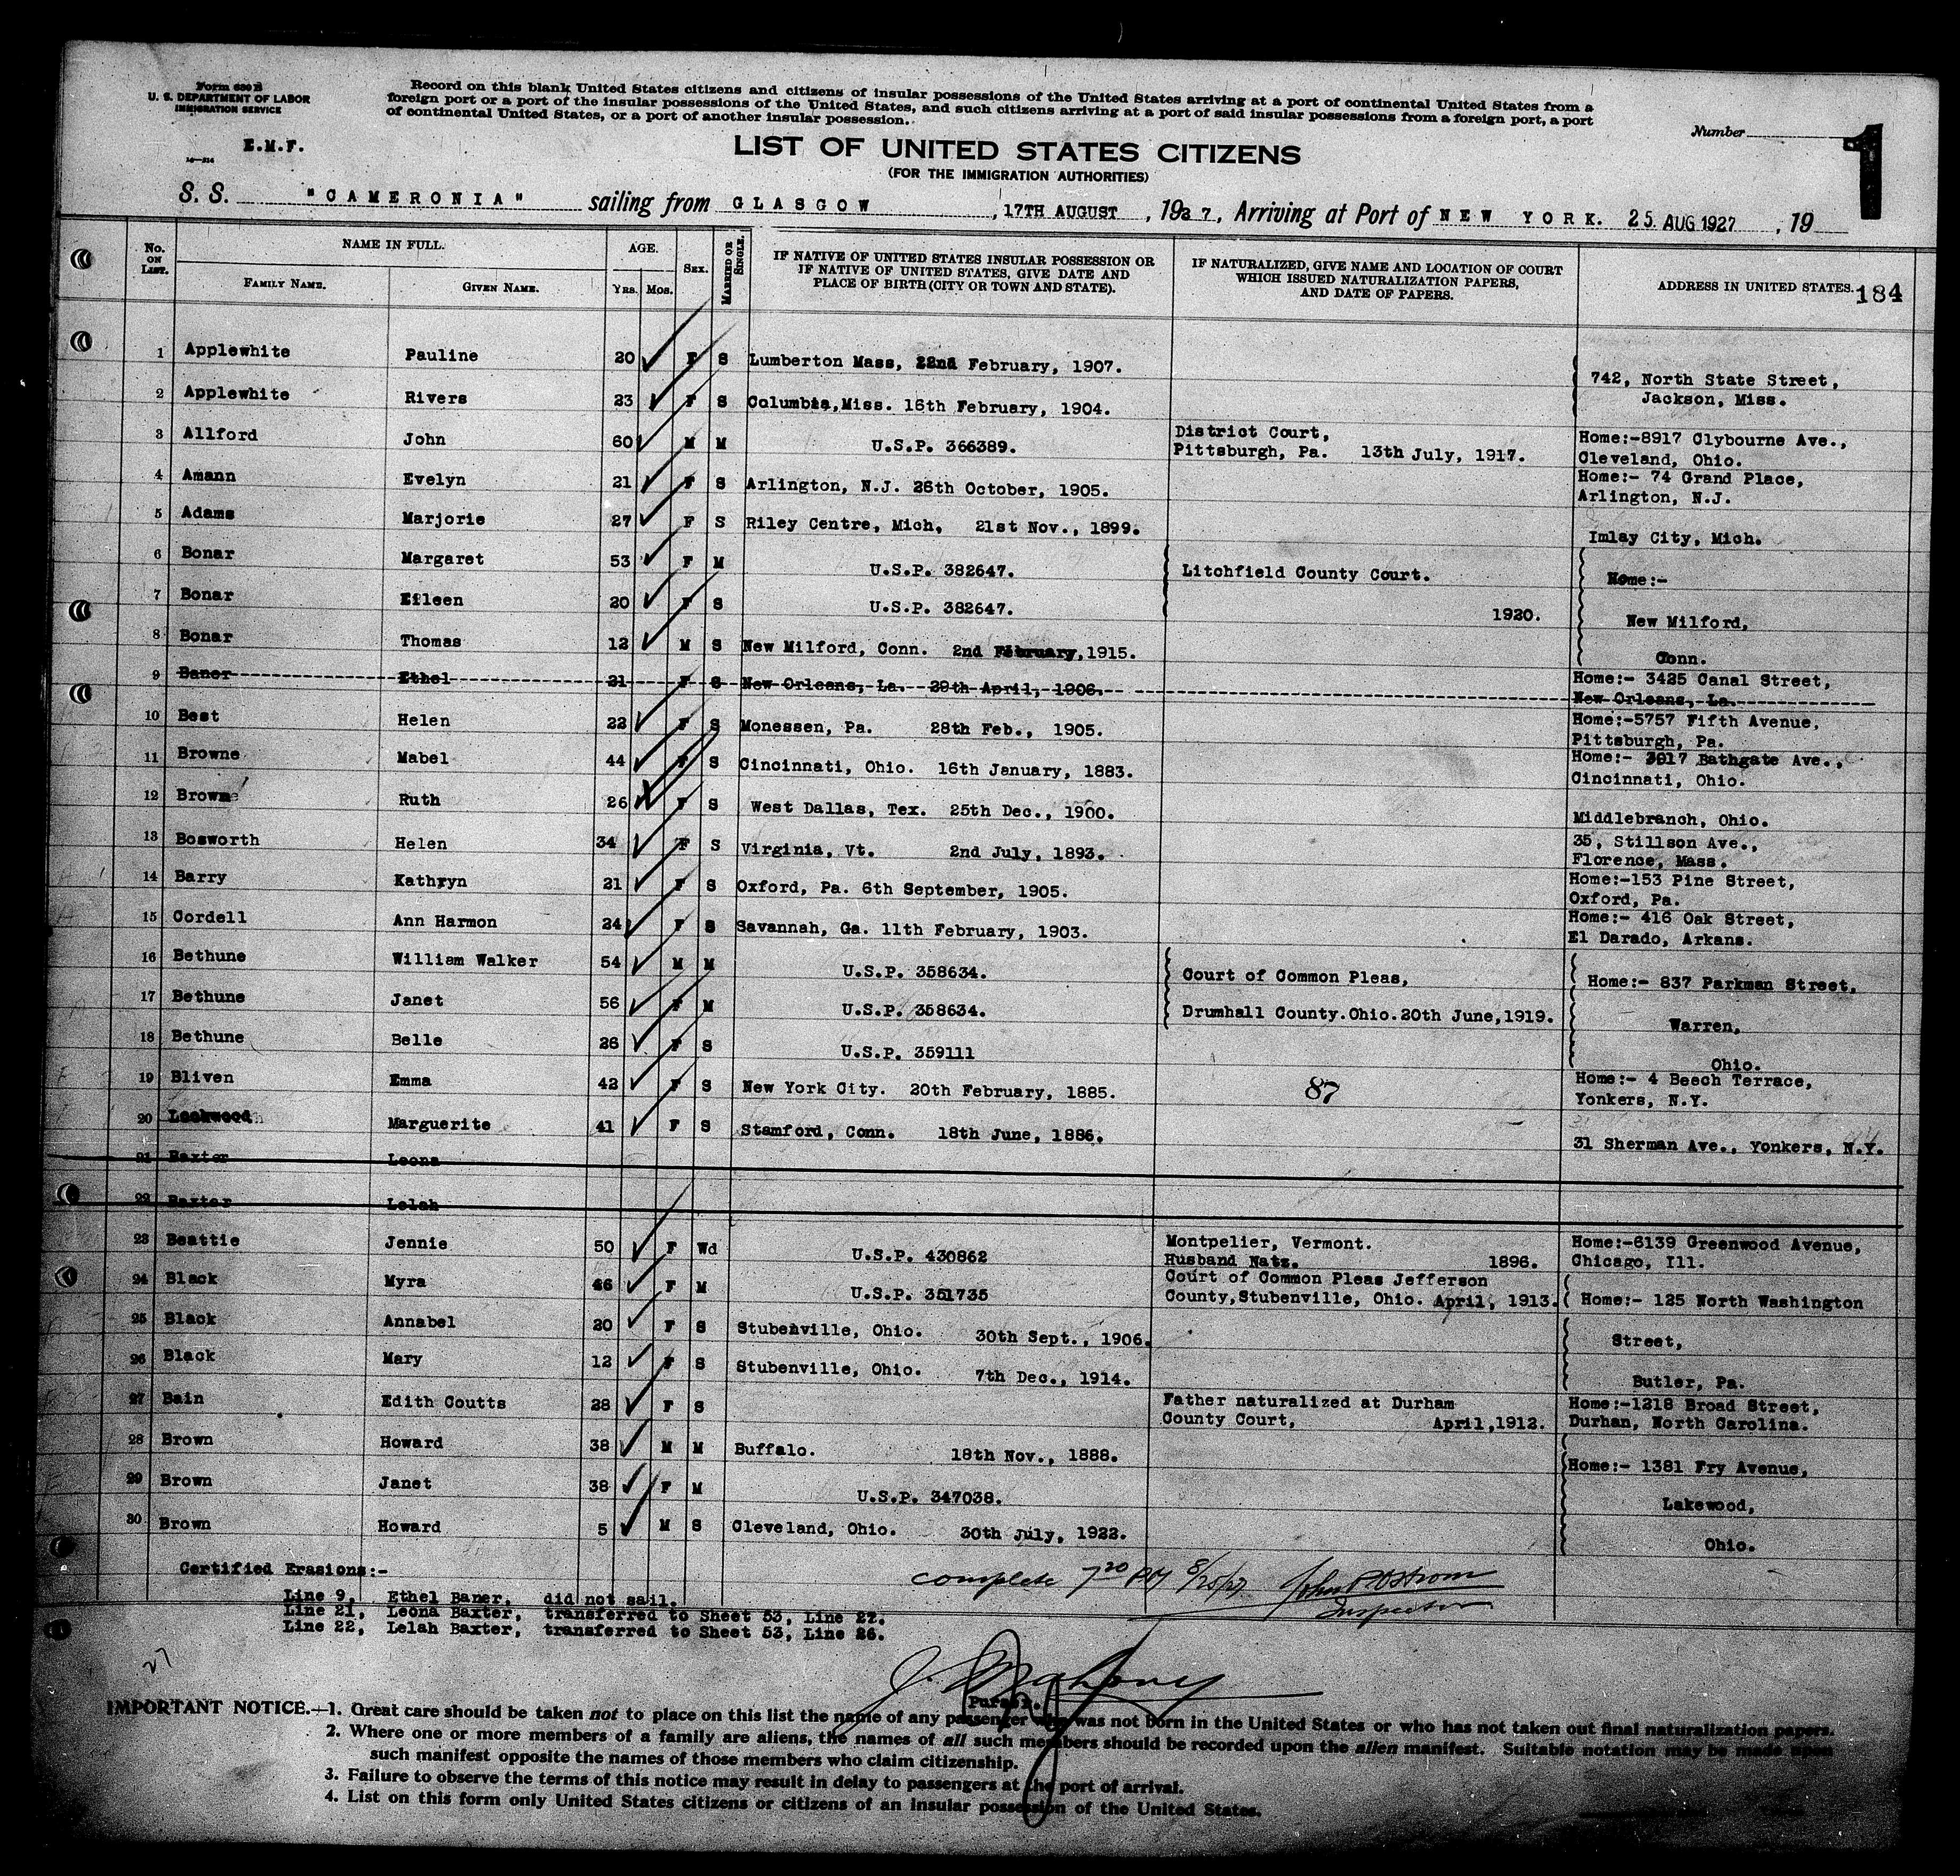 Form 630 B
U. S. DEPARTMENT OF LABOR
IMMIGRATION SERVICE
Record on this blank United States citizens and citizens of insular possessions of the United States arriving at a port of continental United States from a
foreign port or a port of the insular possessions of the United States, and such citizens arriving at a port of said insular possessions from a foreign port, a port
of continental United States, or a port of another insular possession.
Number 1
E.M.F.
14—214
LIST OF UNITED STATES CITIZENS
(FOR THE IMMIGRATION AUTHORITIES)
S. S. "CAMERONIA" sailing from GLASGOW, 17TH AUGUST, 1927, Arriving at Port of NEW YORK. 25. AUG 1927, 19
No. ON LIST. NAME IN FULL. AGE. SEX. MARRIED OR SINGLE. IF NATIVE OF UNITED STATES INSULAR POSSESSION OR IF NATIVE OF UNITED STATES, GIVE DATE AND PLACE OF BIRTH (CITY OR TOWN AND STATE). IF NATURALIZED, GIVE NAME AND LOCATION OF COURT WHICH ISSUED NATURALIZATION PAPERS, AND DATE OF PAPERS. ADDRESS IN UNITED STATES. 184
FAMILY NAME. GIVEN NAME. YRS. MOS.
1 Applewhite Pauline 20 F S Lumberton Mass, 22nd February, 1907. 742, North State Street,
Jackson, Miss.
2 Applewhite Rivers 23 F S Columbia, Miss. 16th February, 1904.
3 Allford John 60 M M U.S.P. 366389. District Court, Pittsburgh, Pa. 13th July, 1917. Home:-8917 Clybourne Ave., Cleveland, Ohio.
4 Amann Evelyn 21 F S Arlington, N.J. 26th October, 1905. Home:- 74 Grand Place, Arlington, N.J.
5 Adams Marjorie 27 F S Riley Centre, Mich, 21st Nov., 1899. Imlay City, Mich.
6 Bonar Margaret 53 F M U.S.P. 382647. Litchfield County Court. Home:-
7 Bonar Eileen 20 F S U.S.P. 382647. 1920. New Milford,
8 Bonar Thomas 12 M S New Milford, Conn. 2nd February, 1915. Conn.
9 Baner Ethel 21 F S New Orleans, La. 29th April, 1906. Home:- 3425 Canal Street, New Orleans, La.
10 Best Helen 22 F S Monessen, Pa. 28th Feb., 1905. Home:-5757 Fifth Avenue, Pittsburgh, Pa.
11 Browne Mabel 44 F S Cincinnati, Ohio. 16th January, 1883. Home:- 3017 Bathgate Ave., Cincinnati, Ohio.
12 Browne Ruth 26 F S West Dallas, Tex. 25th Dec., 1900. Middlebranch, Ohio.
13 Bosworth Helen 34 F S Virginia, Vt. 2nd July, 1893. 35, Stillson Ave., Florence, Mass.
14 Barry Kathryn 21 F S Oxford, Pa. 6th September, 1905. Home:-153 Pine Street, Oxford, Pa.
15 Cordell Ann Harmon 24 F S Savannah, Ga. 11th February, 1903. Home:- 416 Oak Street, El Darado, Arkans.
16 Bethune William Walker 54 M M U.S.P. 358634. Court of Common Pleas, Home:- 837 Parkman Street,
17 Bethune Janet 56 F M U.S.P. 358634. Drumhall County.Ohio.20th June,1919. Warren,
18 Bethune Belle 26 F S U.S.P. 359111 Ohio.
19 Bliven Emma 42 F S New York City. 20th February, 1885. 87 Home:- 4 Beech Terrace, Yonkers, N.Y.
20 Lockwood Marguerite 41 F S Stamford, Conn. 18th June, 1886. 31 Sherman Ave., Yonkers, N.Y.
21 Baxter Leona
22 Baxter Lelah
23 Beattie Jennie 50 F Wd U.S.P. 430862 Montpelier, Vermont. Husband Natz. 1896. Home:-6139 Greenwood Avenue, Chicago, Ill.
24 Black Myra 46 F M U.S.P. 351735 Court of Common Pleas Jefferson County,Stubenville, Ohio. April, 1913. Home:- 125 North Washington
25 Black Annabel 20 F S Stubenville, Ohio. 30th Sept., 1906. Street,
26 Black Mary 12 F S Stubenville, Ohio. 7th Dec., 1914. Butler, Pa.
27 Bain Edith Coutts 28 F S Father naturalized at Durham County Court, April,1912. Home:-1218 Broad Street, Durhan, North Carolina.
28 Brown Howard 38 M M Buffalo. 18th Nov., 1888. Home:- 1381 Fry Avenue,
29 Brown Janet 38 F M U.S.P. 347038. Lakewood,
30 Brown Howard 5 M S Cleveland, Ohio. 30th July, 1922. Ohio.
Certified Erasions:-
complete 7 20 PM 8/25/27 John P Ostrom
Inspector
Line 9, Ethel Baner, did not sail.
Line 21, Leona Baxter, transferred to Sheet 53, Line 27.
Line 22, Lelah Baxter, transferred to Sheet 53, Line 26.
27
Purser.
IMPORTANT NOTICE.—1. Great care should be taken not to place on this list the name of any passenger who was not born in the United States or who has not taken out final naturalization papers.
2. Where one or more members of a family are aliens, the names of all such members should be recorded upon the alien manifest. Suitable notation may be made upon
such manifest opposite the names of those members who claim citizenship.
3. Failure to observe the terms of this notice may result in delay to passengers at the port of arrival.
4. List on this form only United States citizens or citizens of an insular possession of the United States.